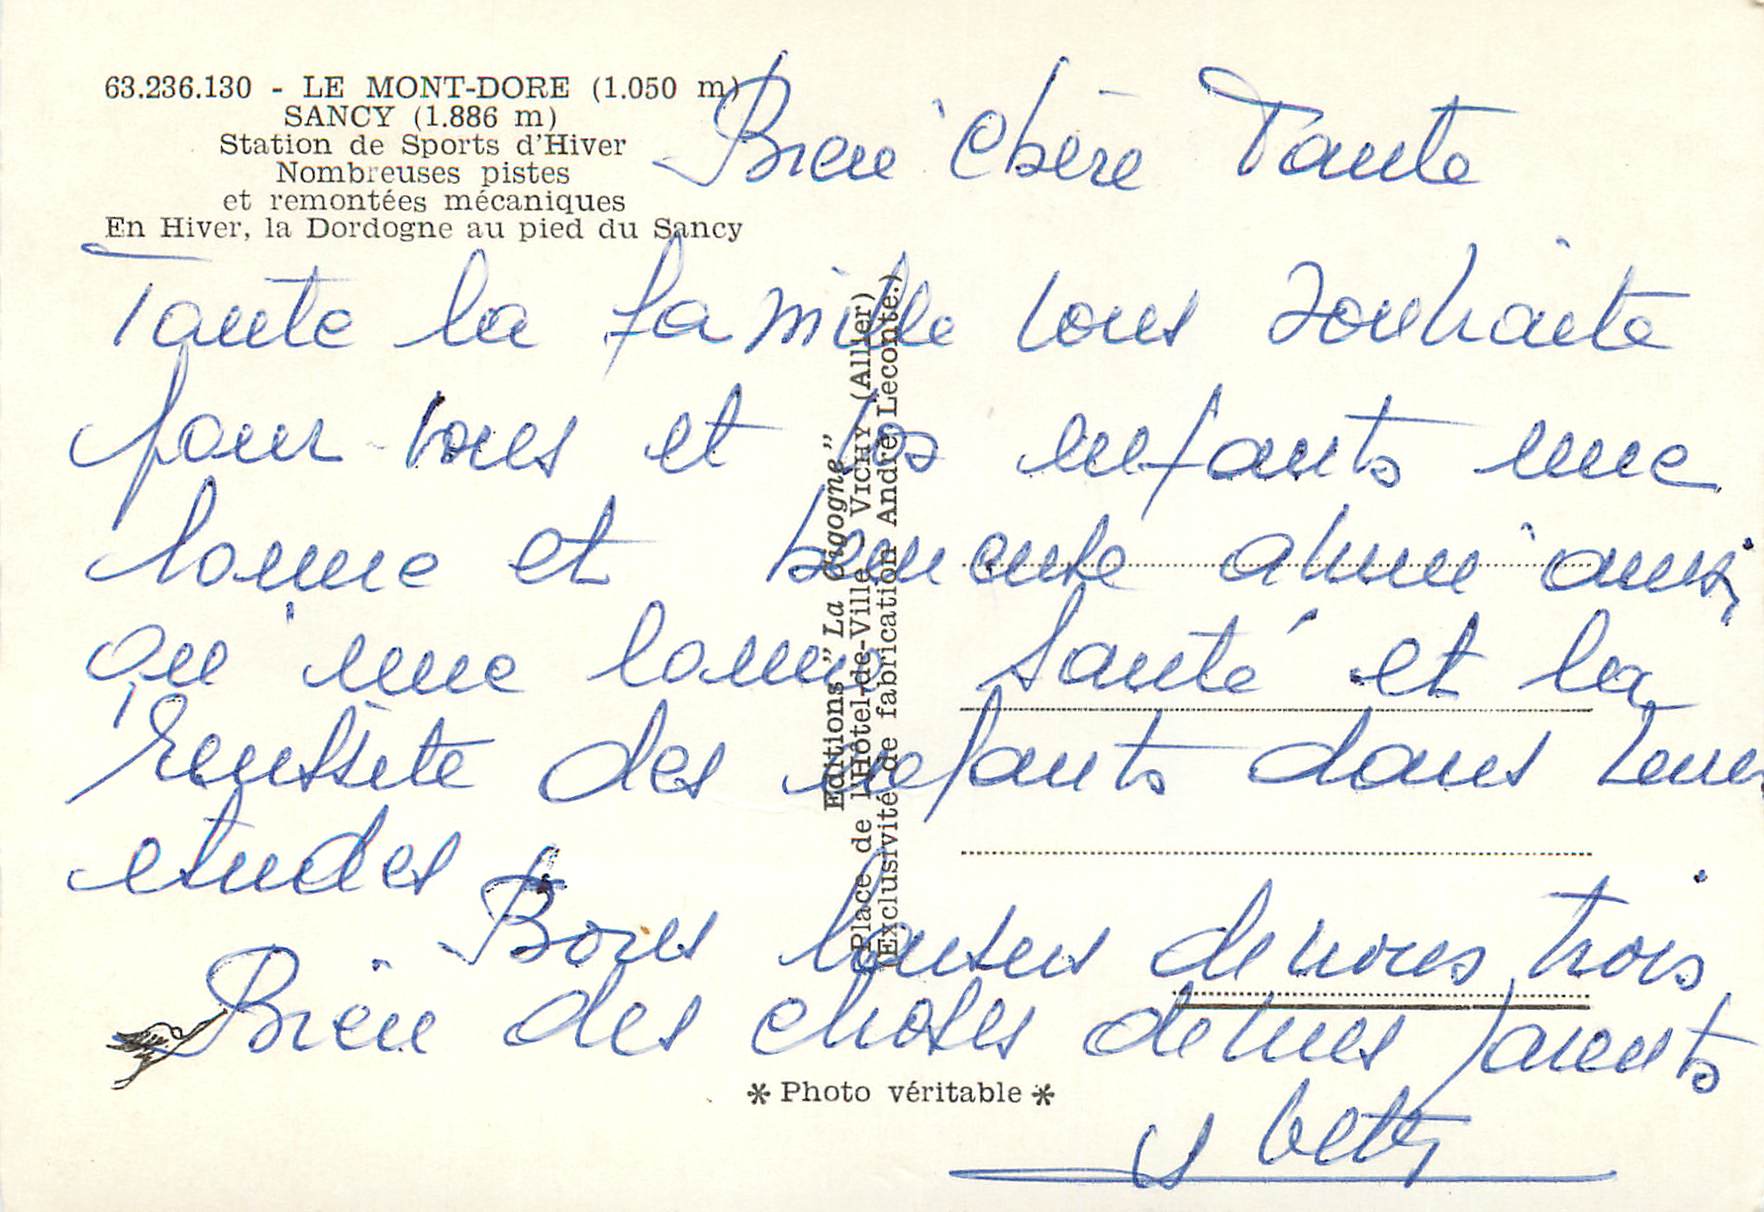 63.236.130 - LE MONT-DORE (1.050 m)
SANCY (1.886 m)
Station de Sports d'Hiver
Nombreuses pistes
et remontées mécaniques
En Hiver, la Dordogne au pied du Sancy
Bien chère Tante
Toute la famille vous souhaite
pour vous et les enfants une
bonne et heureuse année ainsi
qu'une bonne Santé et la
reussite des enfants dans leurs
etudes
Bons baisers de nous trois
Bien des choses de mes parents
betty
Editions "La Cigogne"
Place de l'Hôtel-de-Ville VICHY (Allier)
(Exclusivité de fabrication André Leconte.)
* Photo véritable *